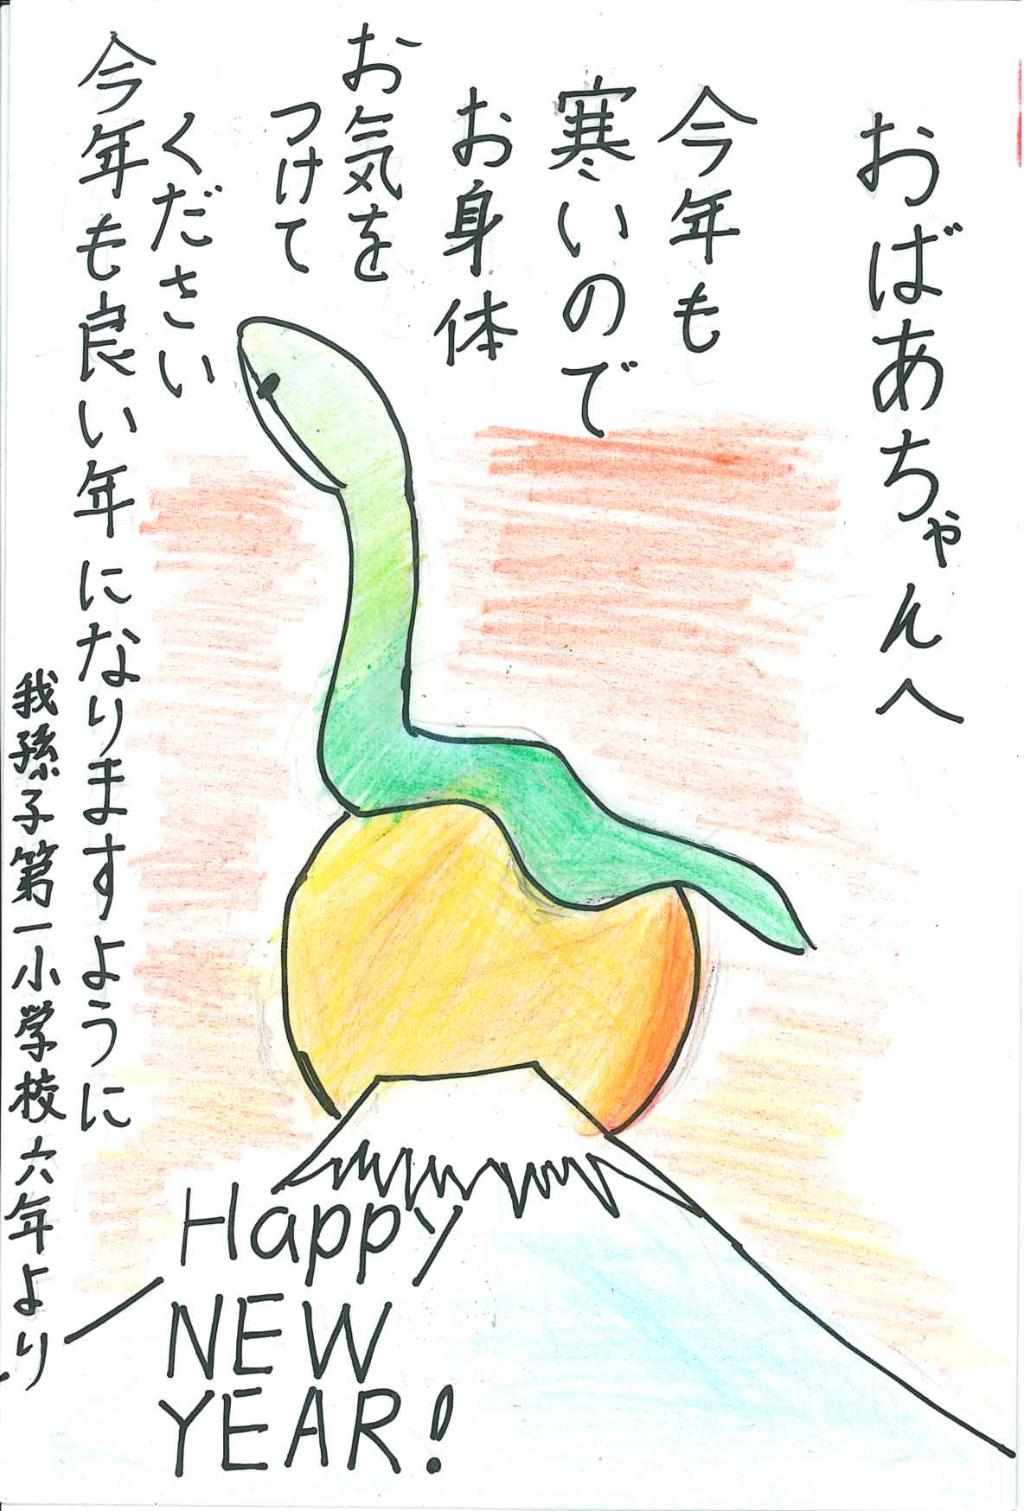 おばあちゃんへ
今年も
寒いので
お身体
お気を
つけて
ください
今年も良い年になりますように
我孫子第一小学校六年より
Happy
NEW
YEAR!